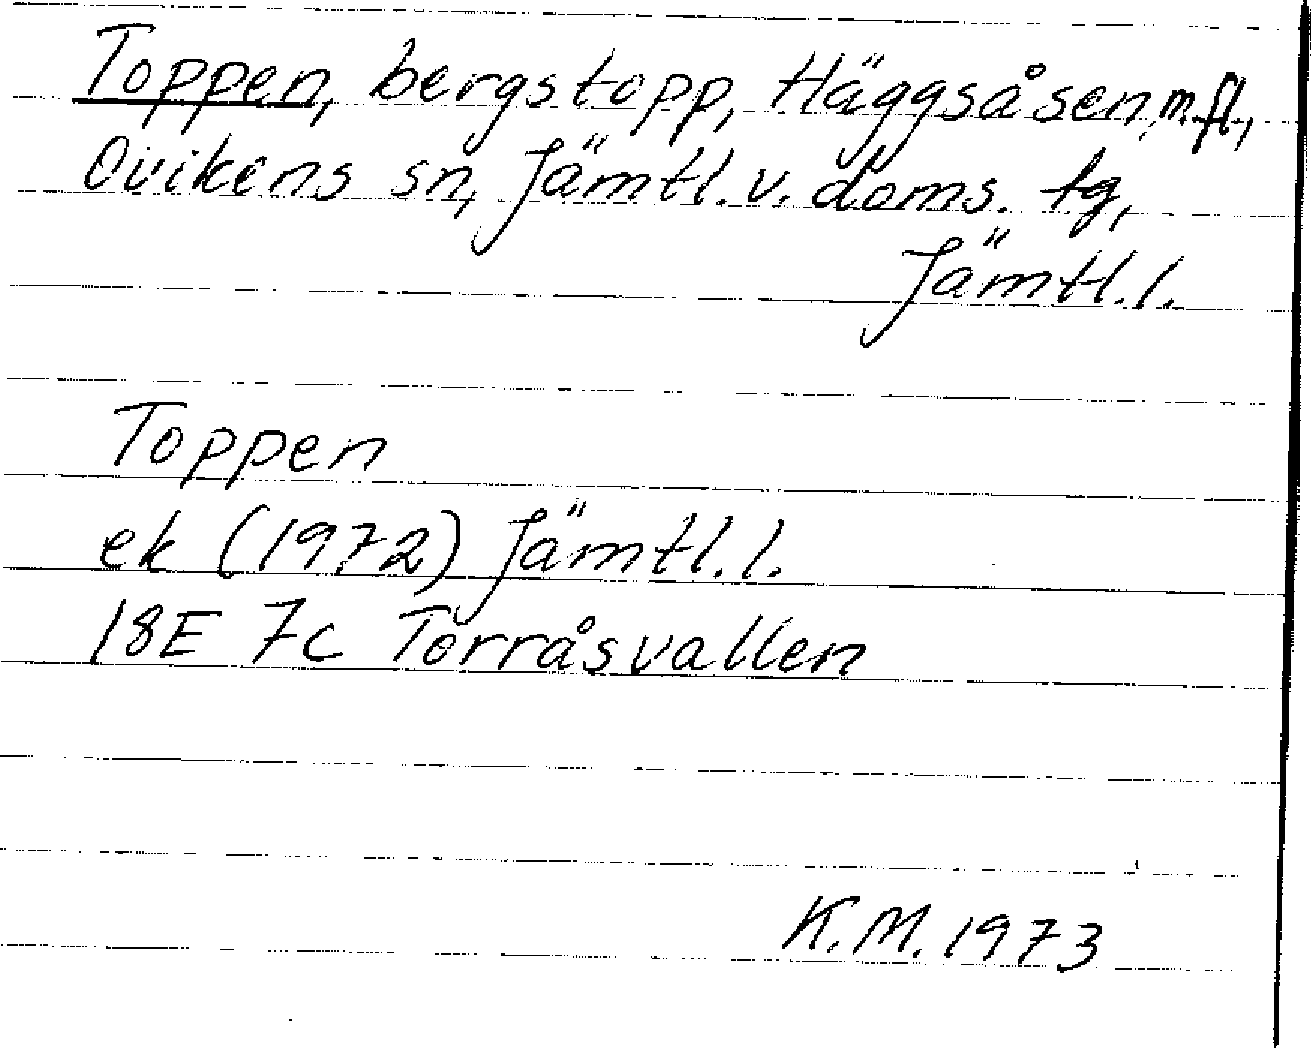 Toppen, bergstopp, Häggsåsen m.fl.,
Ovikens sn, Jämtl. v. doms. tg,
Jämtl. l.
Toppen
ek (1972) Jämtl. l.
18E 7c Torråsvallen
K.M. 1973